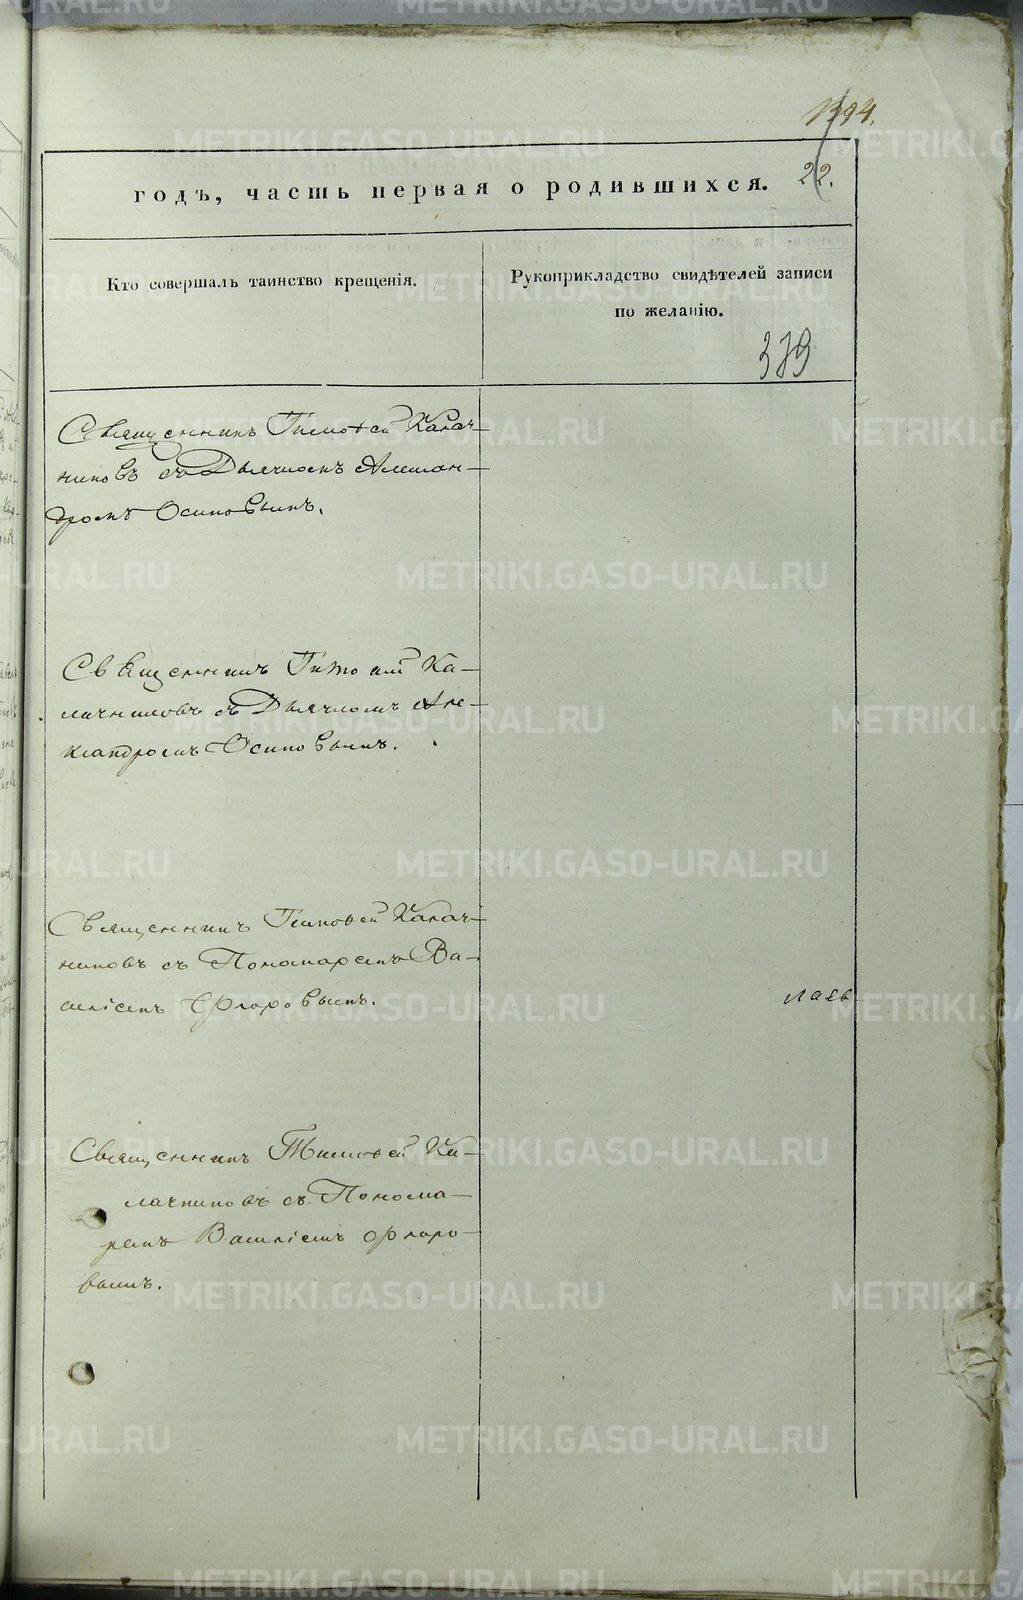 194.
22.
годъ, часть первая о родившихся.
Кто совершалъ таинство крещенія.
Рукоприкладство свидѣтелей записи
по желанію.
379
Священникъ Тимоѳей Калач-
никовъ съ Дьячкомъ Алексан-
дромъ Осиповымъ.
Священникъ Тимоѳей Ка-
лачниковъ съ Дьячкомъ Але-
ксандромъ Осиповымъ.
Священникъ Тимоѳей Калач-
никовъ съ Пономаремъ Ва-
силіемъ Флоровымъ.
Священникъ Тимоѳей Ка-
лачниковъ съ Понома-
ремъ Василіемъ Флоро-
вымъ.
METRIKI.GASO-URAL.RU